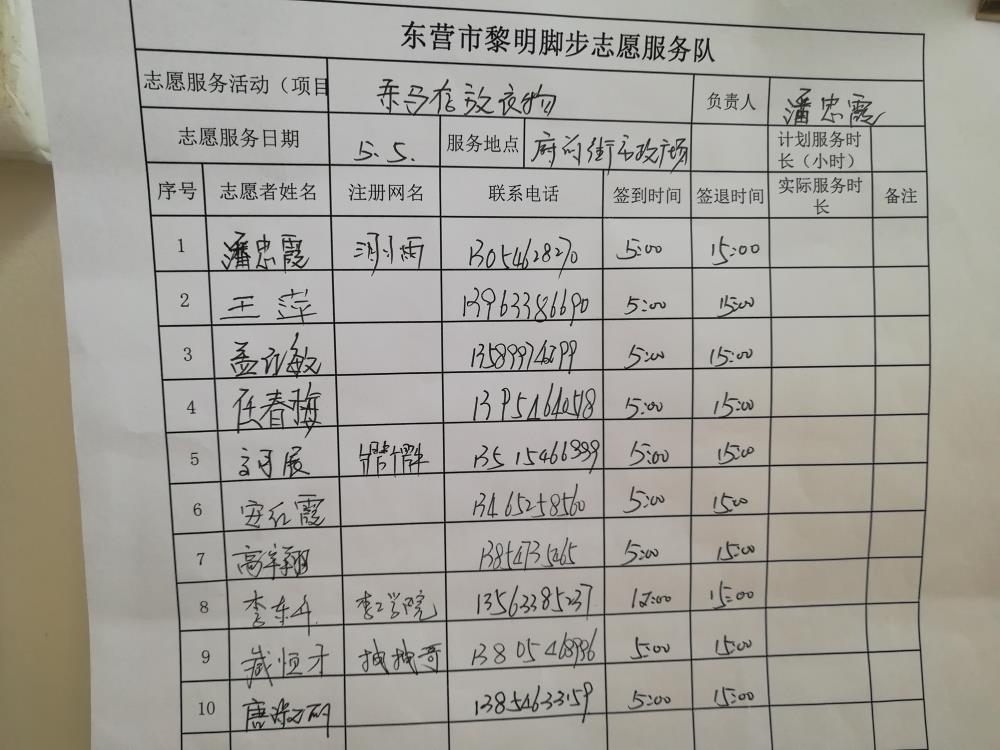 东营市黎明脚步志愿服务队
志愿服务活动（项目 东马存放衣物 负责人 潘忠霞
志愿服务日期 5.5. 服务地点 府前街市政广场 计划服务时长（小时）
序号 志愿者姓名 注册网名 联系电话 签到时间 签退时间 实际服务时长 备注
1 潘忠霞 13054628270 5:00 15:00
2 王萍 13963386690 5:00 15:00
3 孟 敏 13589974299 5:00 15:00
4 任春梅 5:00 15:00
5 展 13515466999 5:00 15:00
6 安红霞 13465258560 5:00 1500
7 高 翔 5:00 15:00
8 李东 李 学院 13563385237 12:00 15:00
9 臧恒才 拽拽哥 13805468996 5:00 15:00
10 唐 13854633159 5:00 15:00